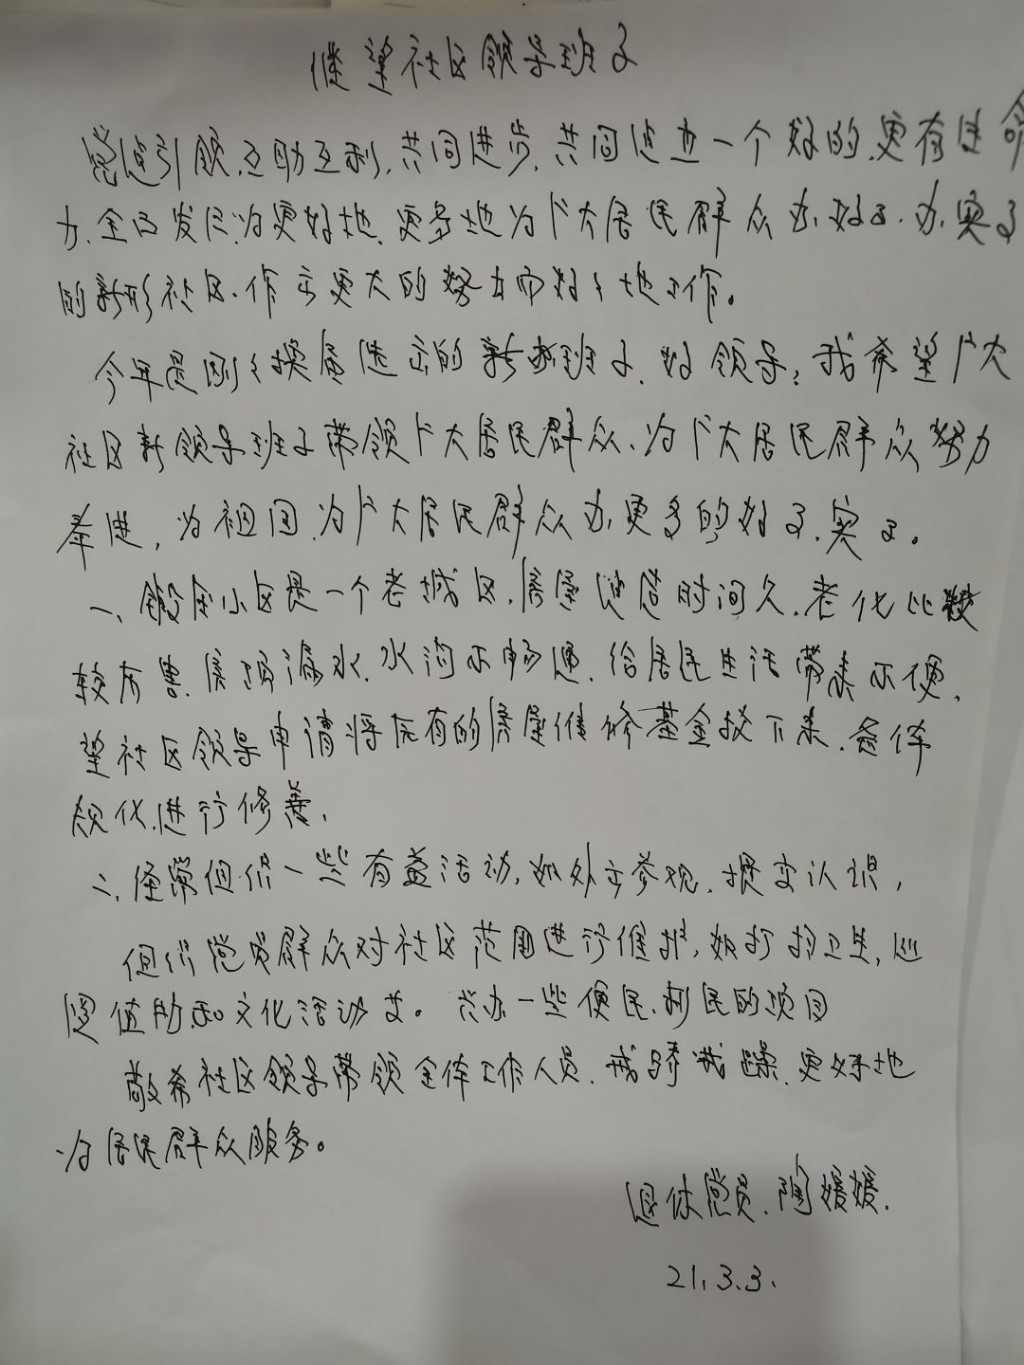 望社区领导班子
党建引领,互助互利,共同进步,共同建造一个好的,更有生命
力,全面发展,为更好地、更多地为广大居民群众办好事、办实事
的新形社区,作出更大的努力而好好地工作。
今年是刚刚换届选出的新班子、好领导,我希望广大
社区新领导班子带领广大居民群众,为广大居民群众努力
奉进,为祖国、为广大居民群众办更多的好事、实事。
一、小区是一个老城区,房屋建造时间久,老化比较
较厉害,房顶漏水,水沟不畅通,给居民生活带来不便,
望社区领导申请将所有的房屋维修基金拨下来,
进行修善,
二、经常组织一些有益活动,如外出参观,提高认识,
组织党员群众对社区范围进行维护,如打扫卫生,巡
逻值勤和文化活动等。兴办一些便民、利民的项目
敬希社区领导带领全体工作人员,戒骄戒躁,更好地
为居民群众服务。
退休党员,陶媛媛.
21.3.3.